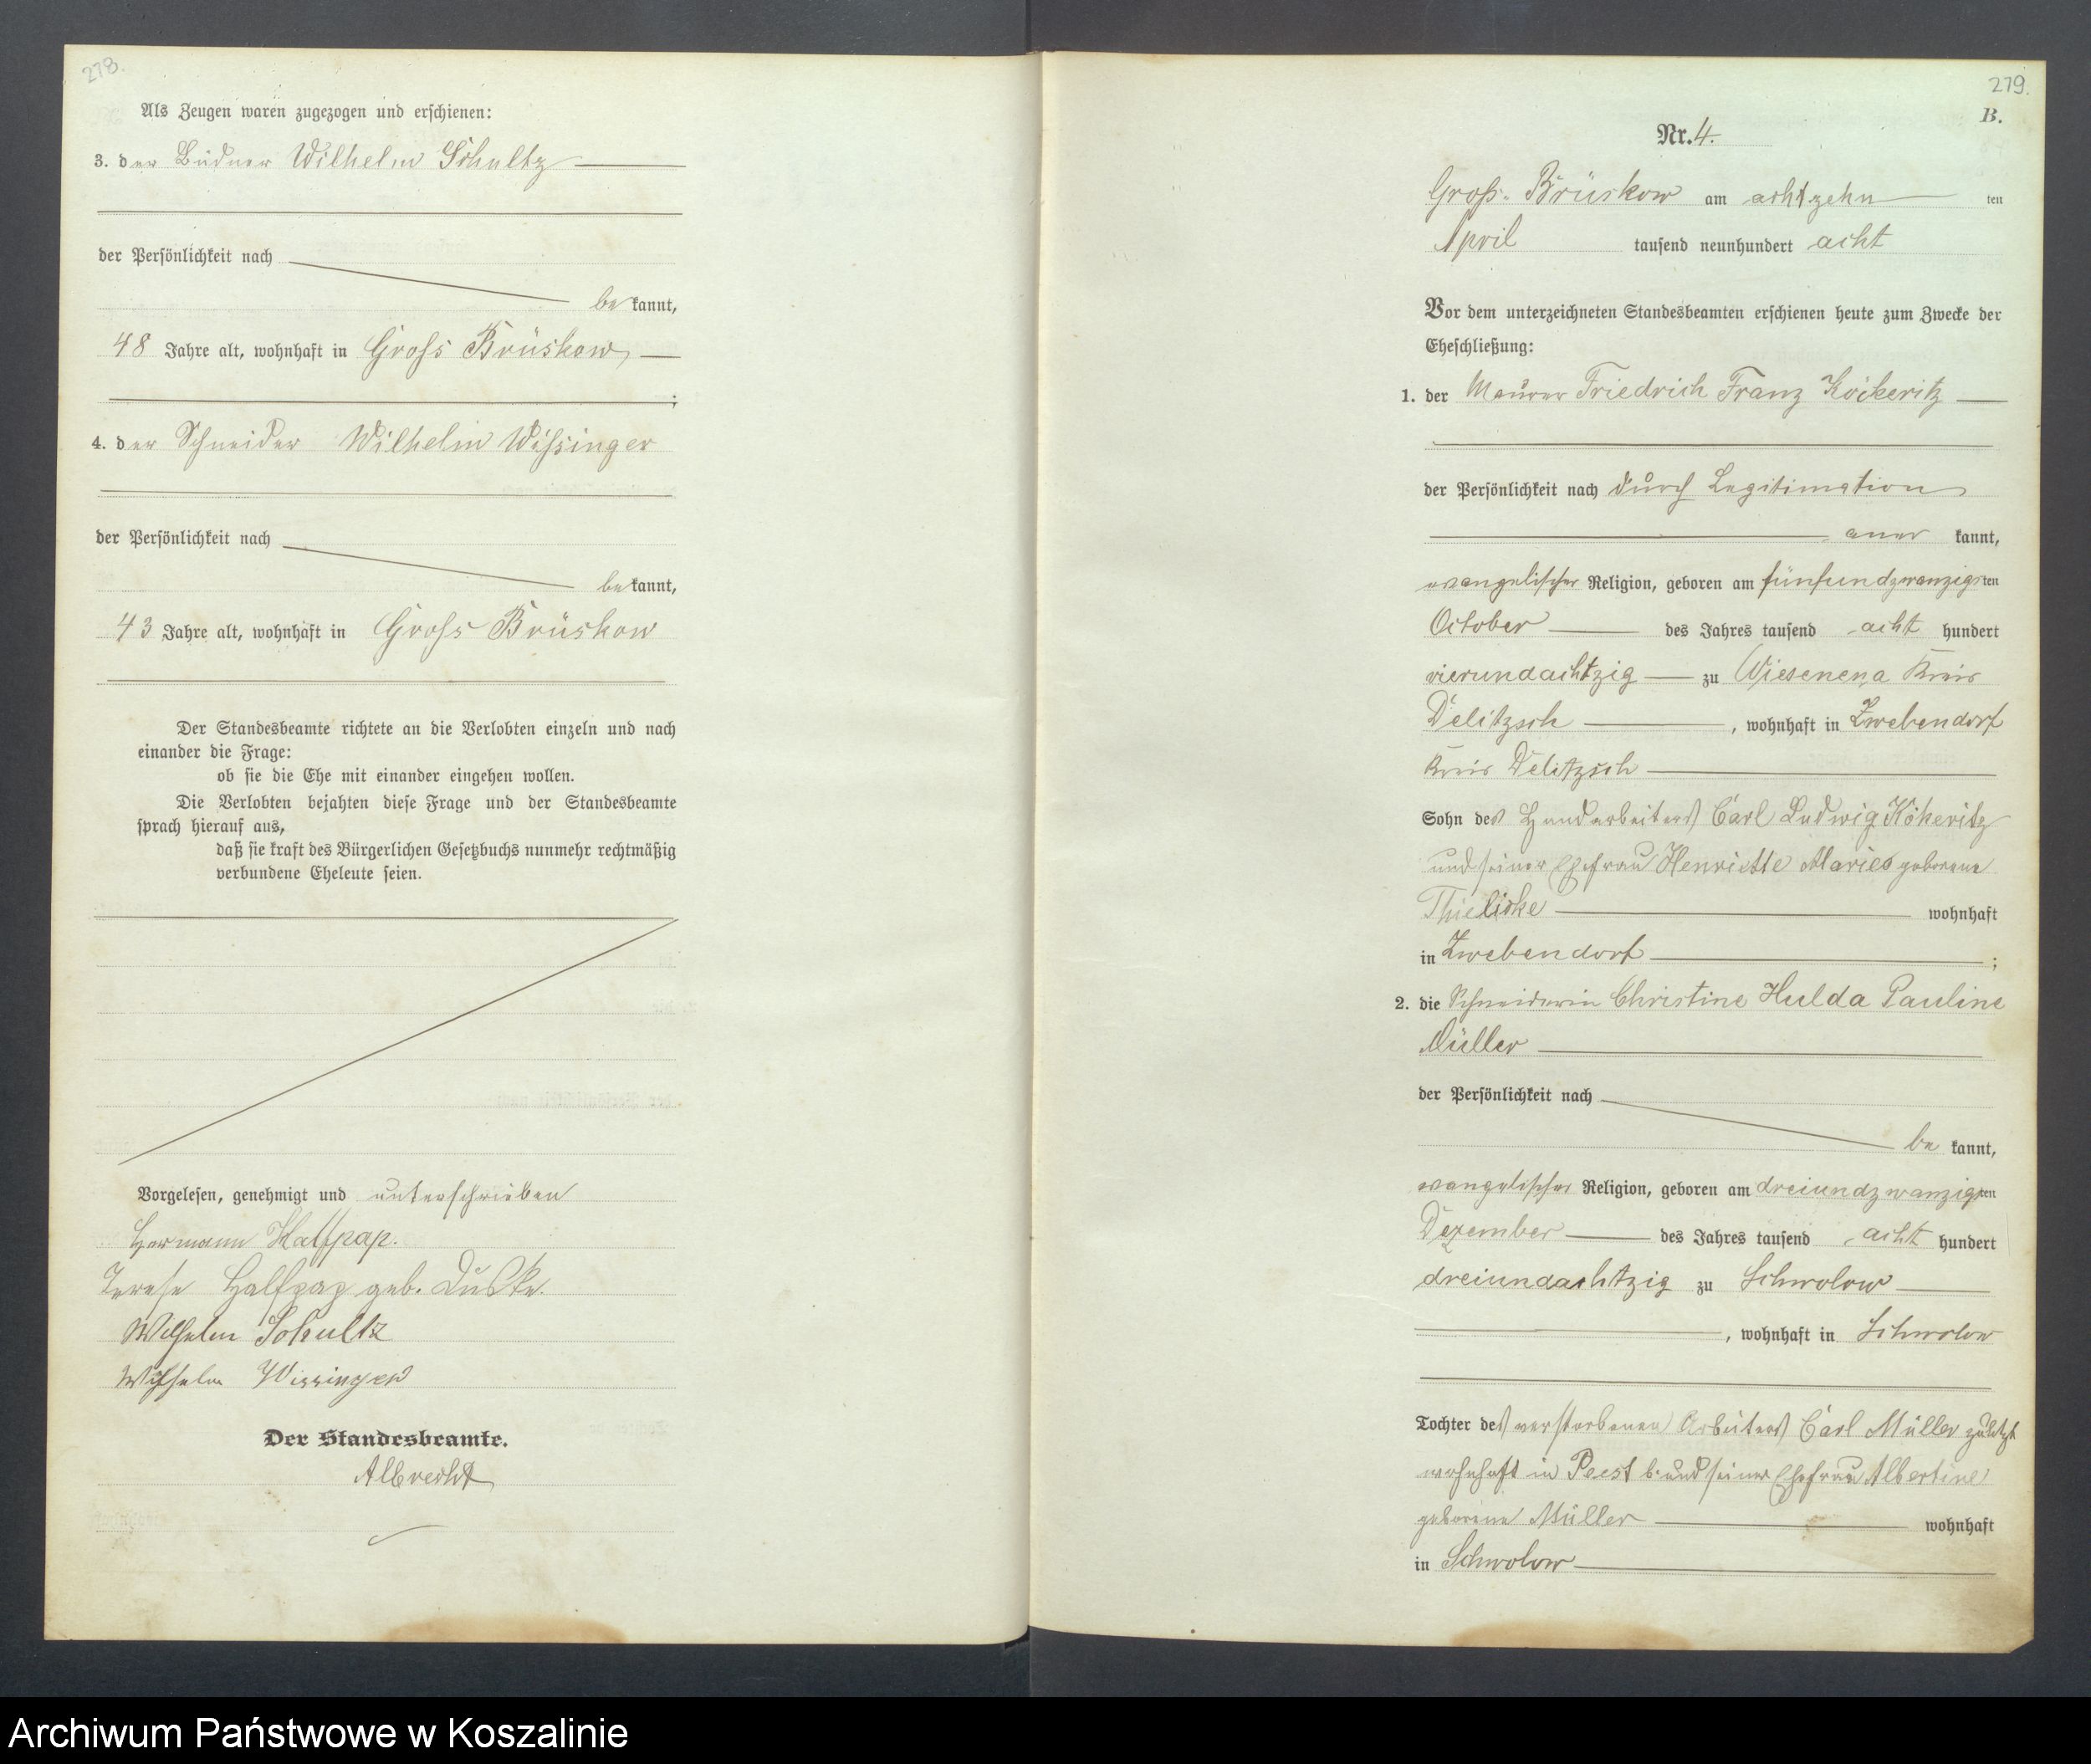 278.
Als Zeugen waren zugezogen und erschienen:
3. der Büdner Wilhelm Schultz
der Persönlichkeit nach
bekannt,
48 Jahre alt, wohnhaft in Gross Brüskow,
;
4. der Schneider Wilhelm Wissinger
der Persönlichkeit nach
bekannt,
43 Jahre alt, wohnhaft in Gross Brüskow
Der Standesbeamte richtete an die Verlobten einzeln und nach
einander die Frage:
ob sie die Ehe mit einander eingehen wollen.
Die Verlobten bejahten diese Frage und der Standesbeamte
sprach hierauf aus,
daß sie kraft des Bürgerlichen Gesetzbuchs nunmehr rechtmäßig
verbundene Eheleute seien.
Vorgelesen, genehmigt und unterschrieben
Hermann Halfpap.
Terese Halfpap geb.
Wilhelm Schultz
Wilhelm Wissinger
Der Standesbeamte.
Albrecht
279.
B.
Nr. 4.
Gross-Brüskow am achtzehn ten
April tausend neunhundert acht
Vor dem unterzeichneten Standesbeamten erschienen heute zum Zwecke der
Eheschließung:
1. der Maurer Friedrich Franz Köckeritz
der Persönlichkeit nach durch Legitimation
aner kannt,
evangelischer Religion, geboren am fünfundzwanzigsten
October des Jahres tausend acht hundert
vierundachtzig zu Wiesenena Kreis
Delitzsch, wohnhaft in Zwebendorf
Kreis Delitzsch
Sohn des Handarbeiters Carl Ludwig Kökeritz
und seiner Ehefrau Henriette Marie geborene
wohnhaft
in Zwebendorf ;
2. die Schneiderin Christine Hulda Pauline
Müller
der Persönlichkeit nach
be kannt,
evangelischer Religion, geboren am dreiundzwanzigsten
Dezember des Jahres tausend acht hundert
dreiundachtzig zu Schwolow
, wohnhaft in Schwolow
Tochter des verstorbenen Arbeiters Carl Müller zuletzt
wohnhaft in Peest und seiner Ehefrau Albertine
geborene Müller wohnhaft
in Schwolow
Archiwum Państwowe w Koszalinie